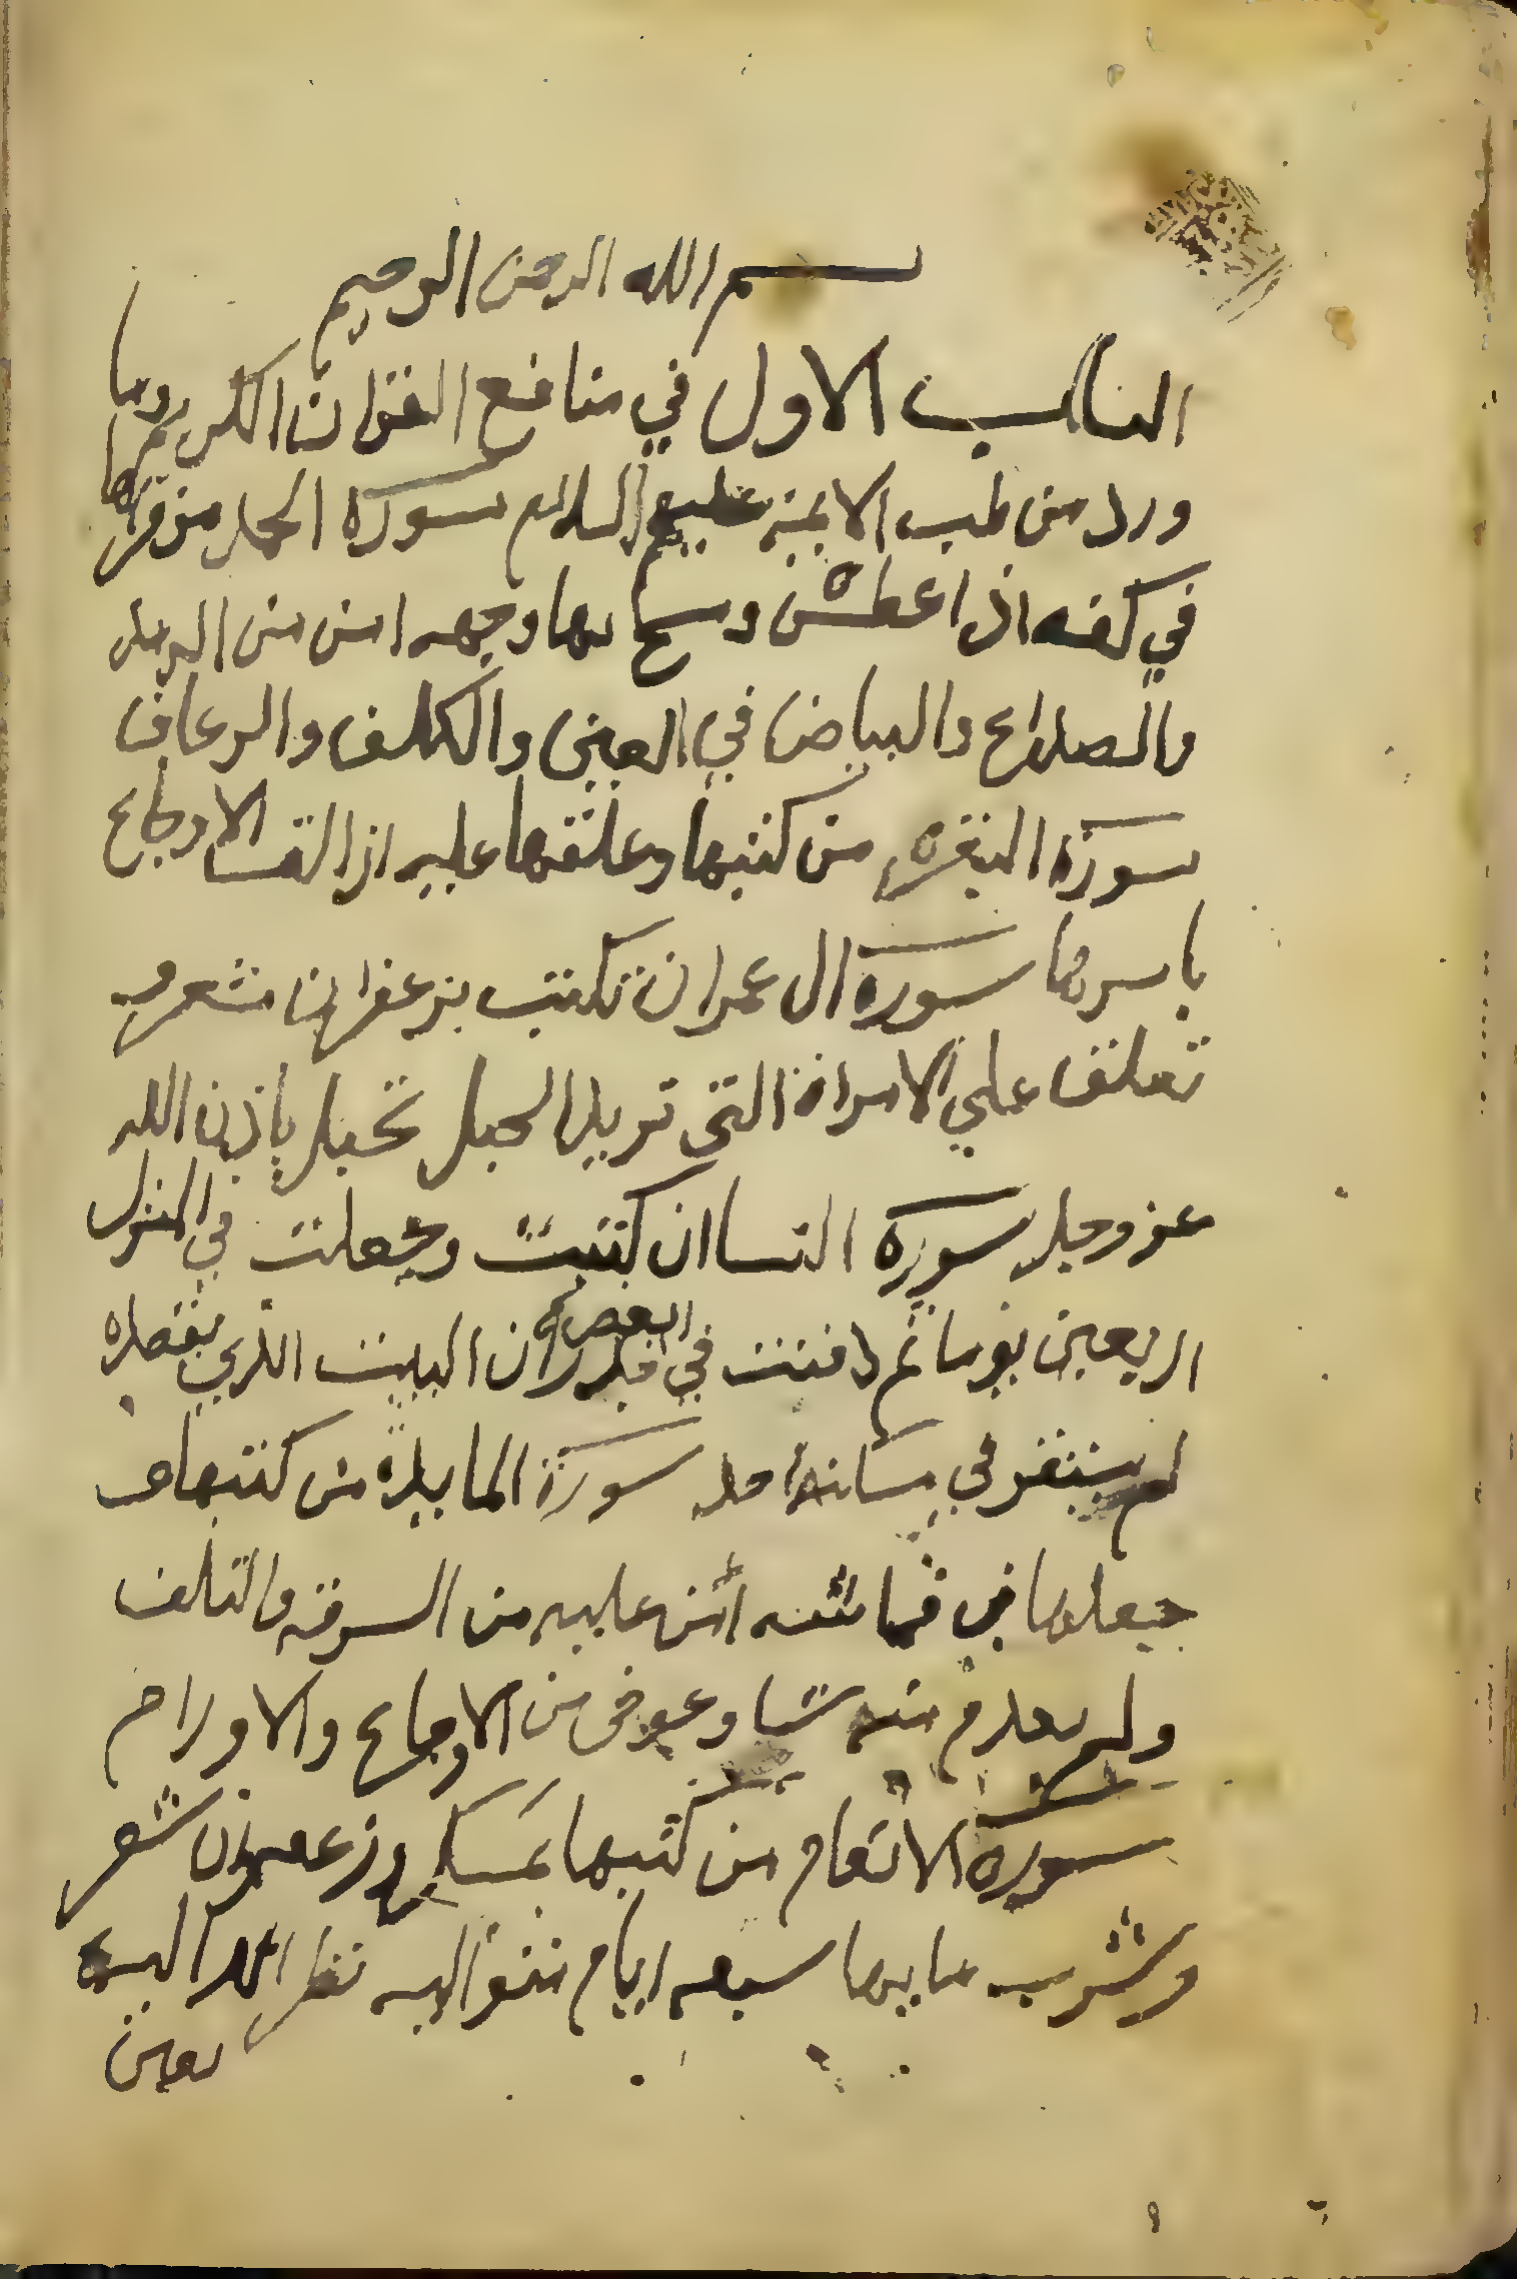 بسم الله الرحمن الرحيم
الباب الاول في منافع القران الكريم وما
ورد من طب الايمة عليهم السلام سورة الحمد من قراها
في كفه اذا عطش ومسح بها وجهه امن من الرمد
والصداع والبياض في العين والكلف والرعاف
سورة البقره من كتبها وعلقها عليه ازالت الاوجاع
باسرها سورة ال عمران تكتب بزعفران
تعلق علي الامراة التي تريد الحبل تحبل باذن الله
عز وجل سورة النسا ان كتبت وجعلت في المنزل
اربعين يوما ثم دفنت في بعض جدران البيت الذي يقصده
لم يستقر في احد سورة المايدة من كتبها و
جعلها في قماشه امن عليه من السرقه والتلف
ولم يعدم منه شيا وعوفى من الاوجاع والاورام
سورة الانعام من كتبها بمسك وزعفران شعر
وشرب مايها سبعه ايام متواليه نظر الله اليه
بعين